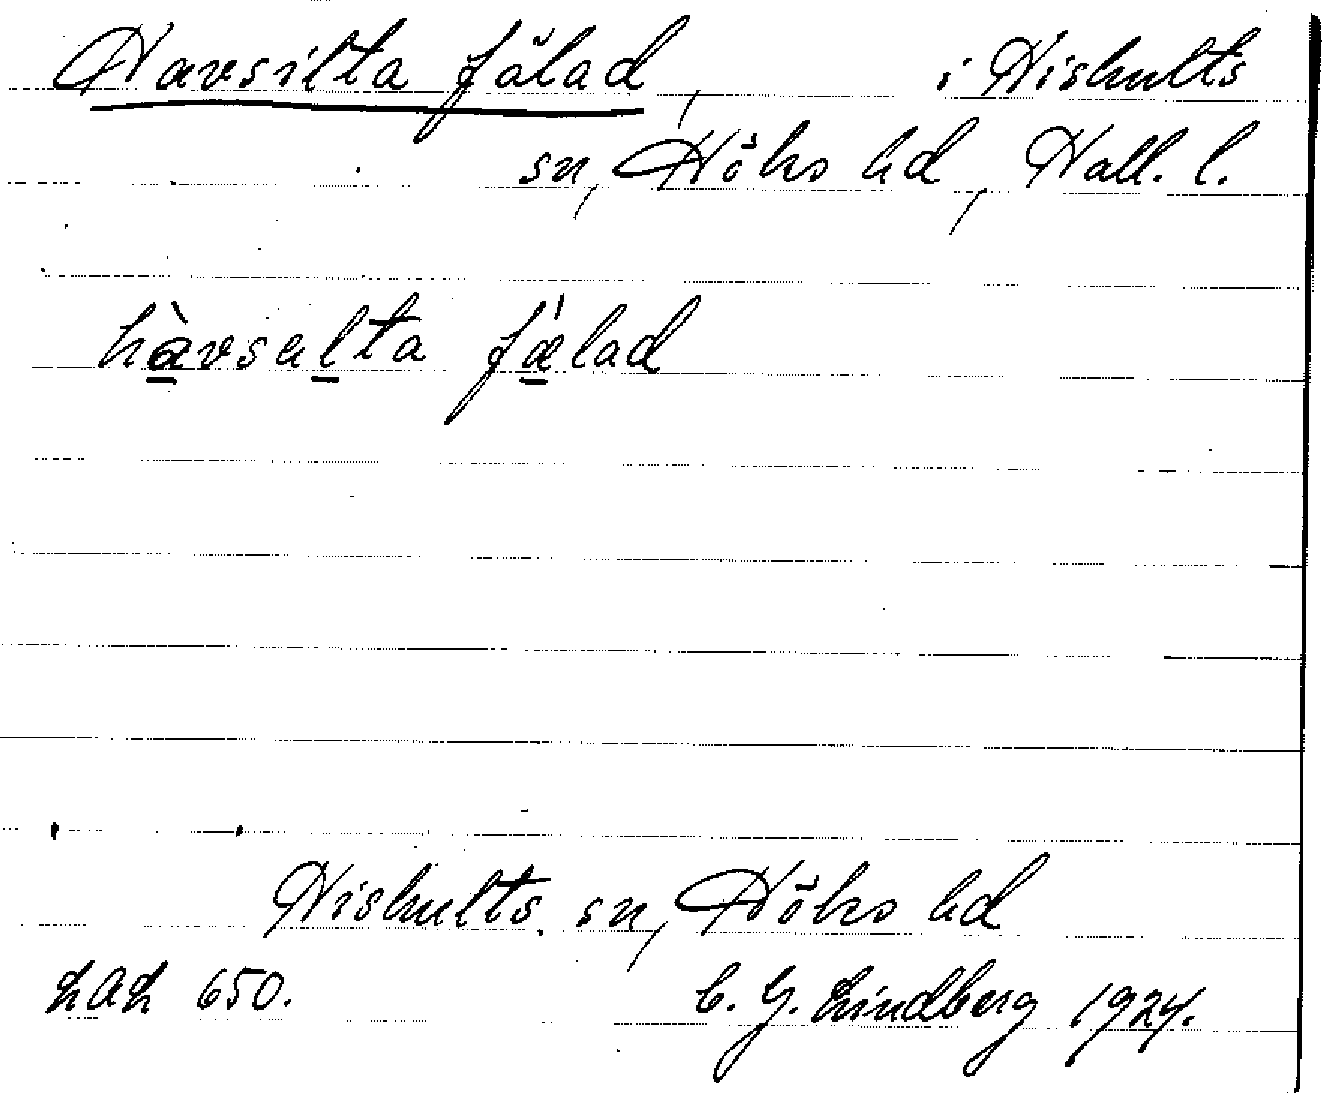 Havsilta fålad, i Hishults
sn, Höks hd, Hall. l.
hàvsalta fálad
Hishults sn, Höks hd
LAL 650. C. G. Lindberg 1924.